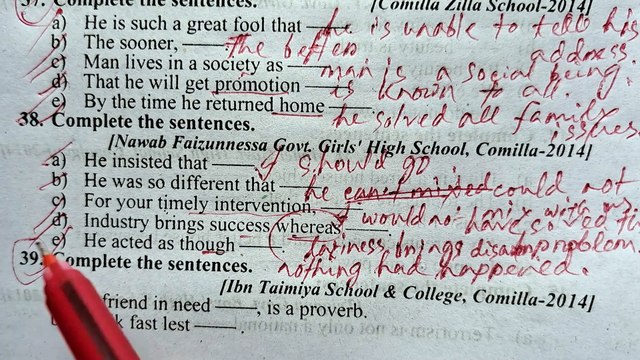 37. Complete the sentences. [Comilla Zilla School-2014]
a) He is such a great fool that he is unable to tell his address.
b) The sooner, the better
c) Man lives in a society as man is a social being.
d) That he will get promotion is known to all.
e) By the time he returned home he solved all family issues
38. Complete the sentences.
[Nawab Faizunnessa Govt. Girls' High School, Comilla-2014]
a) He insisted that I should go
b) He was so different that he could not mix with us.
c) For your timely intervention, I would not have solved the problem.
d) Industry brings success whereas laziness brings
e) He acted as though nothing had happened.
39. Complete the sentences.
[Ibn Taimiya School & College, Comilla-2014]
friend in need ——, is a proverb.
fast lest ——.